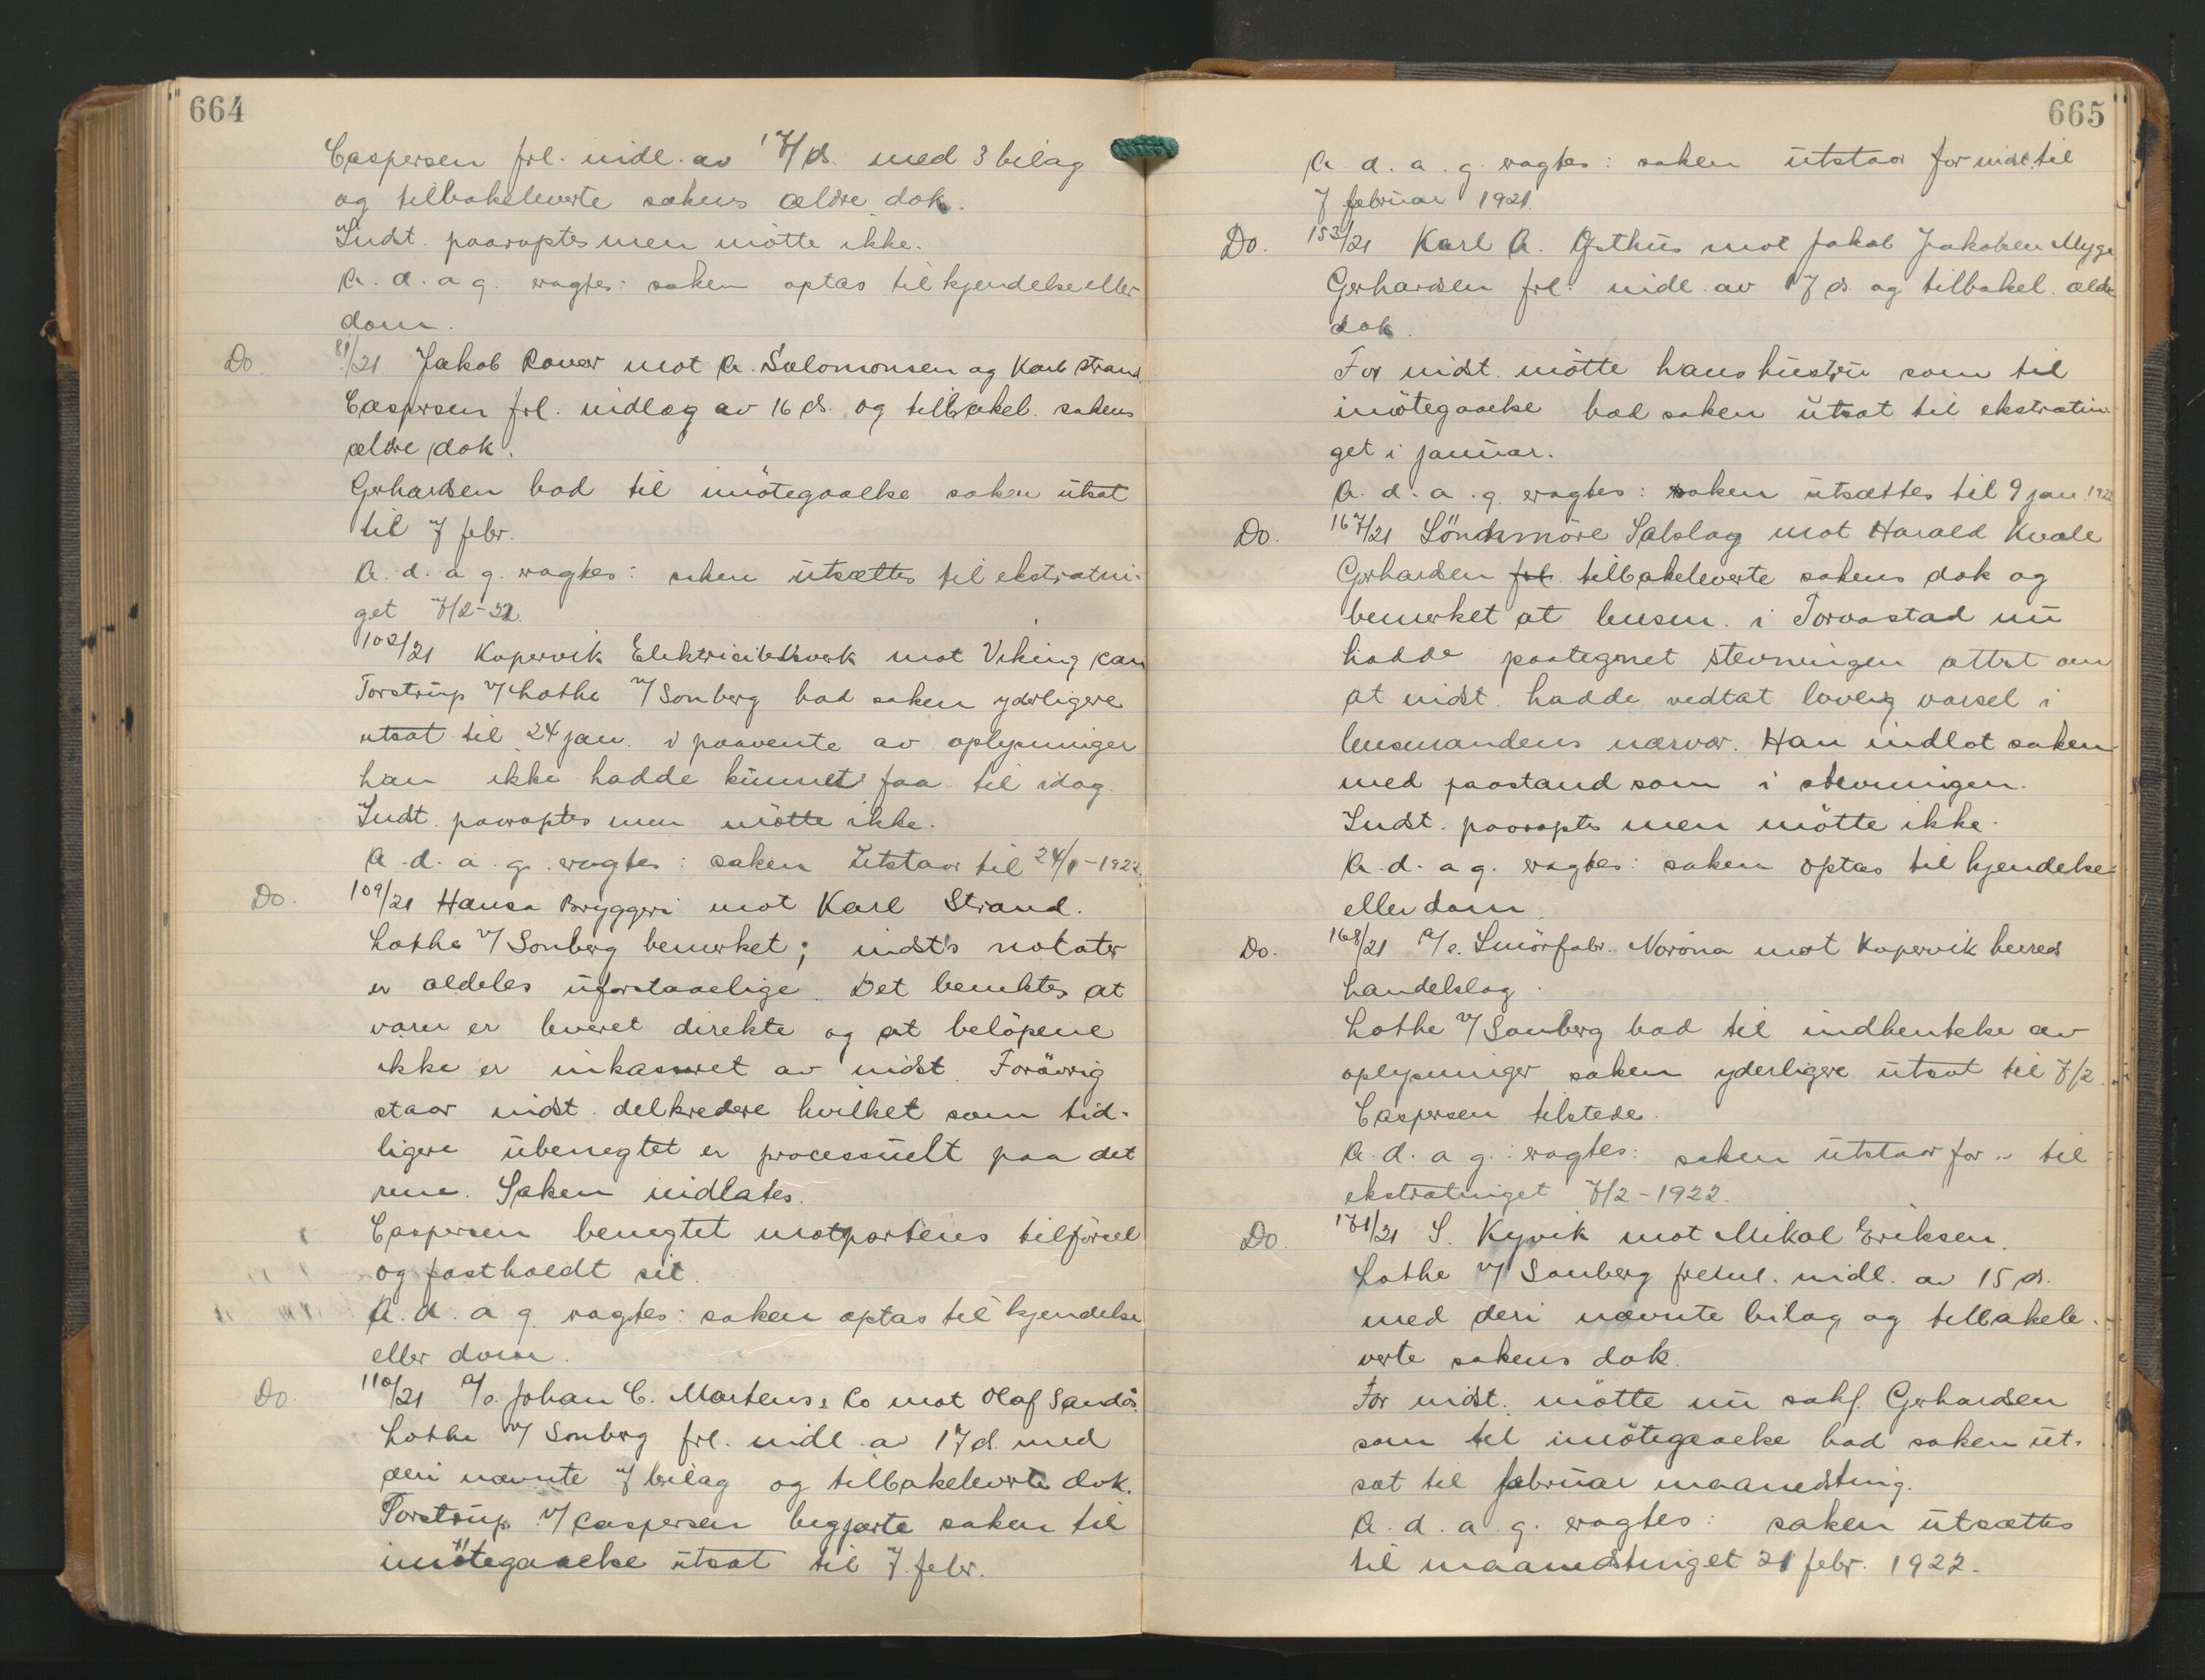 664
Caspersen frl. indl. av 17/ds. med 3 bilag
og tilbakeleverte sakens ældre dok.
Indst. paaroptes men mötte ikke.
A. d. a g. eragtes: saken optas til kjendelse eller
dom.
Do. 81/21 Jakob Rovær mot A. Salomonsen og Karl Strand
Caspersen frl. indlæg av 16 ds. og tilbakel. sakens
ældre dok.
Gerhardsen bad til imötegaaelse saken utsat
til 7 febr.
A. d. a g. eragtes: saken utsættes til ekstratin-
get 7/2-22.
102/21 Kopervik Elektricitetsverk mot Viking kan
Torstrup v/ Lothe v/ Sonberg bad saken yderligere
utsat til 24 jan. i paavente av oplysninger
han ikke hadde kunnet faa til idag.
Indst. paaroptes men mötte ikke.
A. d. a. g. eragtes: saken utstaar til 24/1-1922.
Do. 109/21 Hansa Bryggeri mot Karl Strand.
Lothe v/ Sonberg bemerket; indst's notater
er aldeles uforstaaelige. Det benektes at
varer er leveret direkte og at belöpene
ikke er inkasseret av indst. Forövrig
staar indst. delkredere hvilket som tid-
ligere ubenegtet er processuelt paa det
rene. Saken indlates.
Caspersen benegtet motpartens tilförsel
og fastholdt sit.
A. d. a g. eragtes: saken optas til kjendelse
eller dom.
Do. 110/21 A/s. Johan C. Martens & Co mot Olaf Sandö.
Lothe v/ Sonberg frl. indl. a 17 ds. med
deri nævnte 7 bilag og tilbakeleverte dok.
Torstrup v/ Caspersen begjærte saken til
imötegaaelse utsat til 7. febr.
665
A. d. a. g. eragtes: saken utstaar for indst. til
7 februar 1921.
Do. 153/21 Karl A. Østhus mot Jakob Jakobsen Myge
Gerhardsen frl. indl. av 17 ds og tilbakel. ældre
dok.
For indst. mötte hans hustru som til
imötegaaelse bad saken utsat til ekstratin-
get i januar.
A. d. a. g. eragtes: saken utsættes til 9 jan 1922
Do. 167/21 Söndmöre Salslag mot Harald Kvale
Gerhardsen frl. tilbakeleverte sakens dok og
bemerket at lensm. i Torvastad nu
hadde paategnet stevningen attest om
at indst. hadde vedtat lovlig varsel i
lensmandens nærvær. Han indlot saken
med paastand som i stevningen.
Indst. paaroptes men mötte ikke.
A. d. a g. eragtes: saken optas til kjendelse
eller dom.
Do. 168/21 A/s. Smörfabr. Noröna mot Kopervik herreds
handelslag.
Lothe v/ Sonberg bad til indhentelse av
oplysninger saken yderligere utsat til 7/2.
Caspersen tilstede.
A. d. a g. eragtes: saken utstaar for " til
ekstratinget 7/2-1922.
Do. 171/21 S. Kyvik mot Mikal Eriksen.
Lothe v/ Sonberg freml. indl. av 15 ds.
med deri nævnte bilag og tilbakele-
verte sakens dok.
For indst. mötte nu sakf. Gerhardsen
som til imötegaaelse bad saken ut-
sat til februar maanedsting.
A. d. a. g. eragtes: saken utsættes
til maanedstinget 21 febr. 1922.